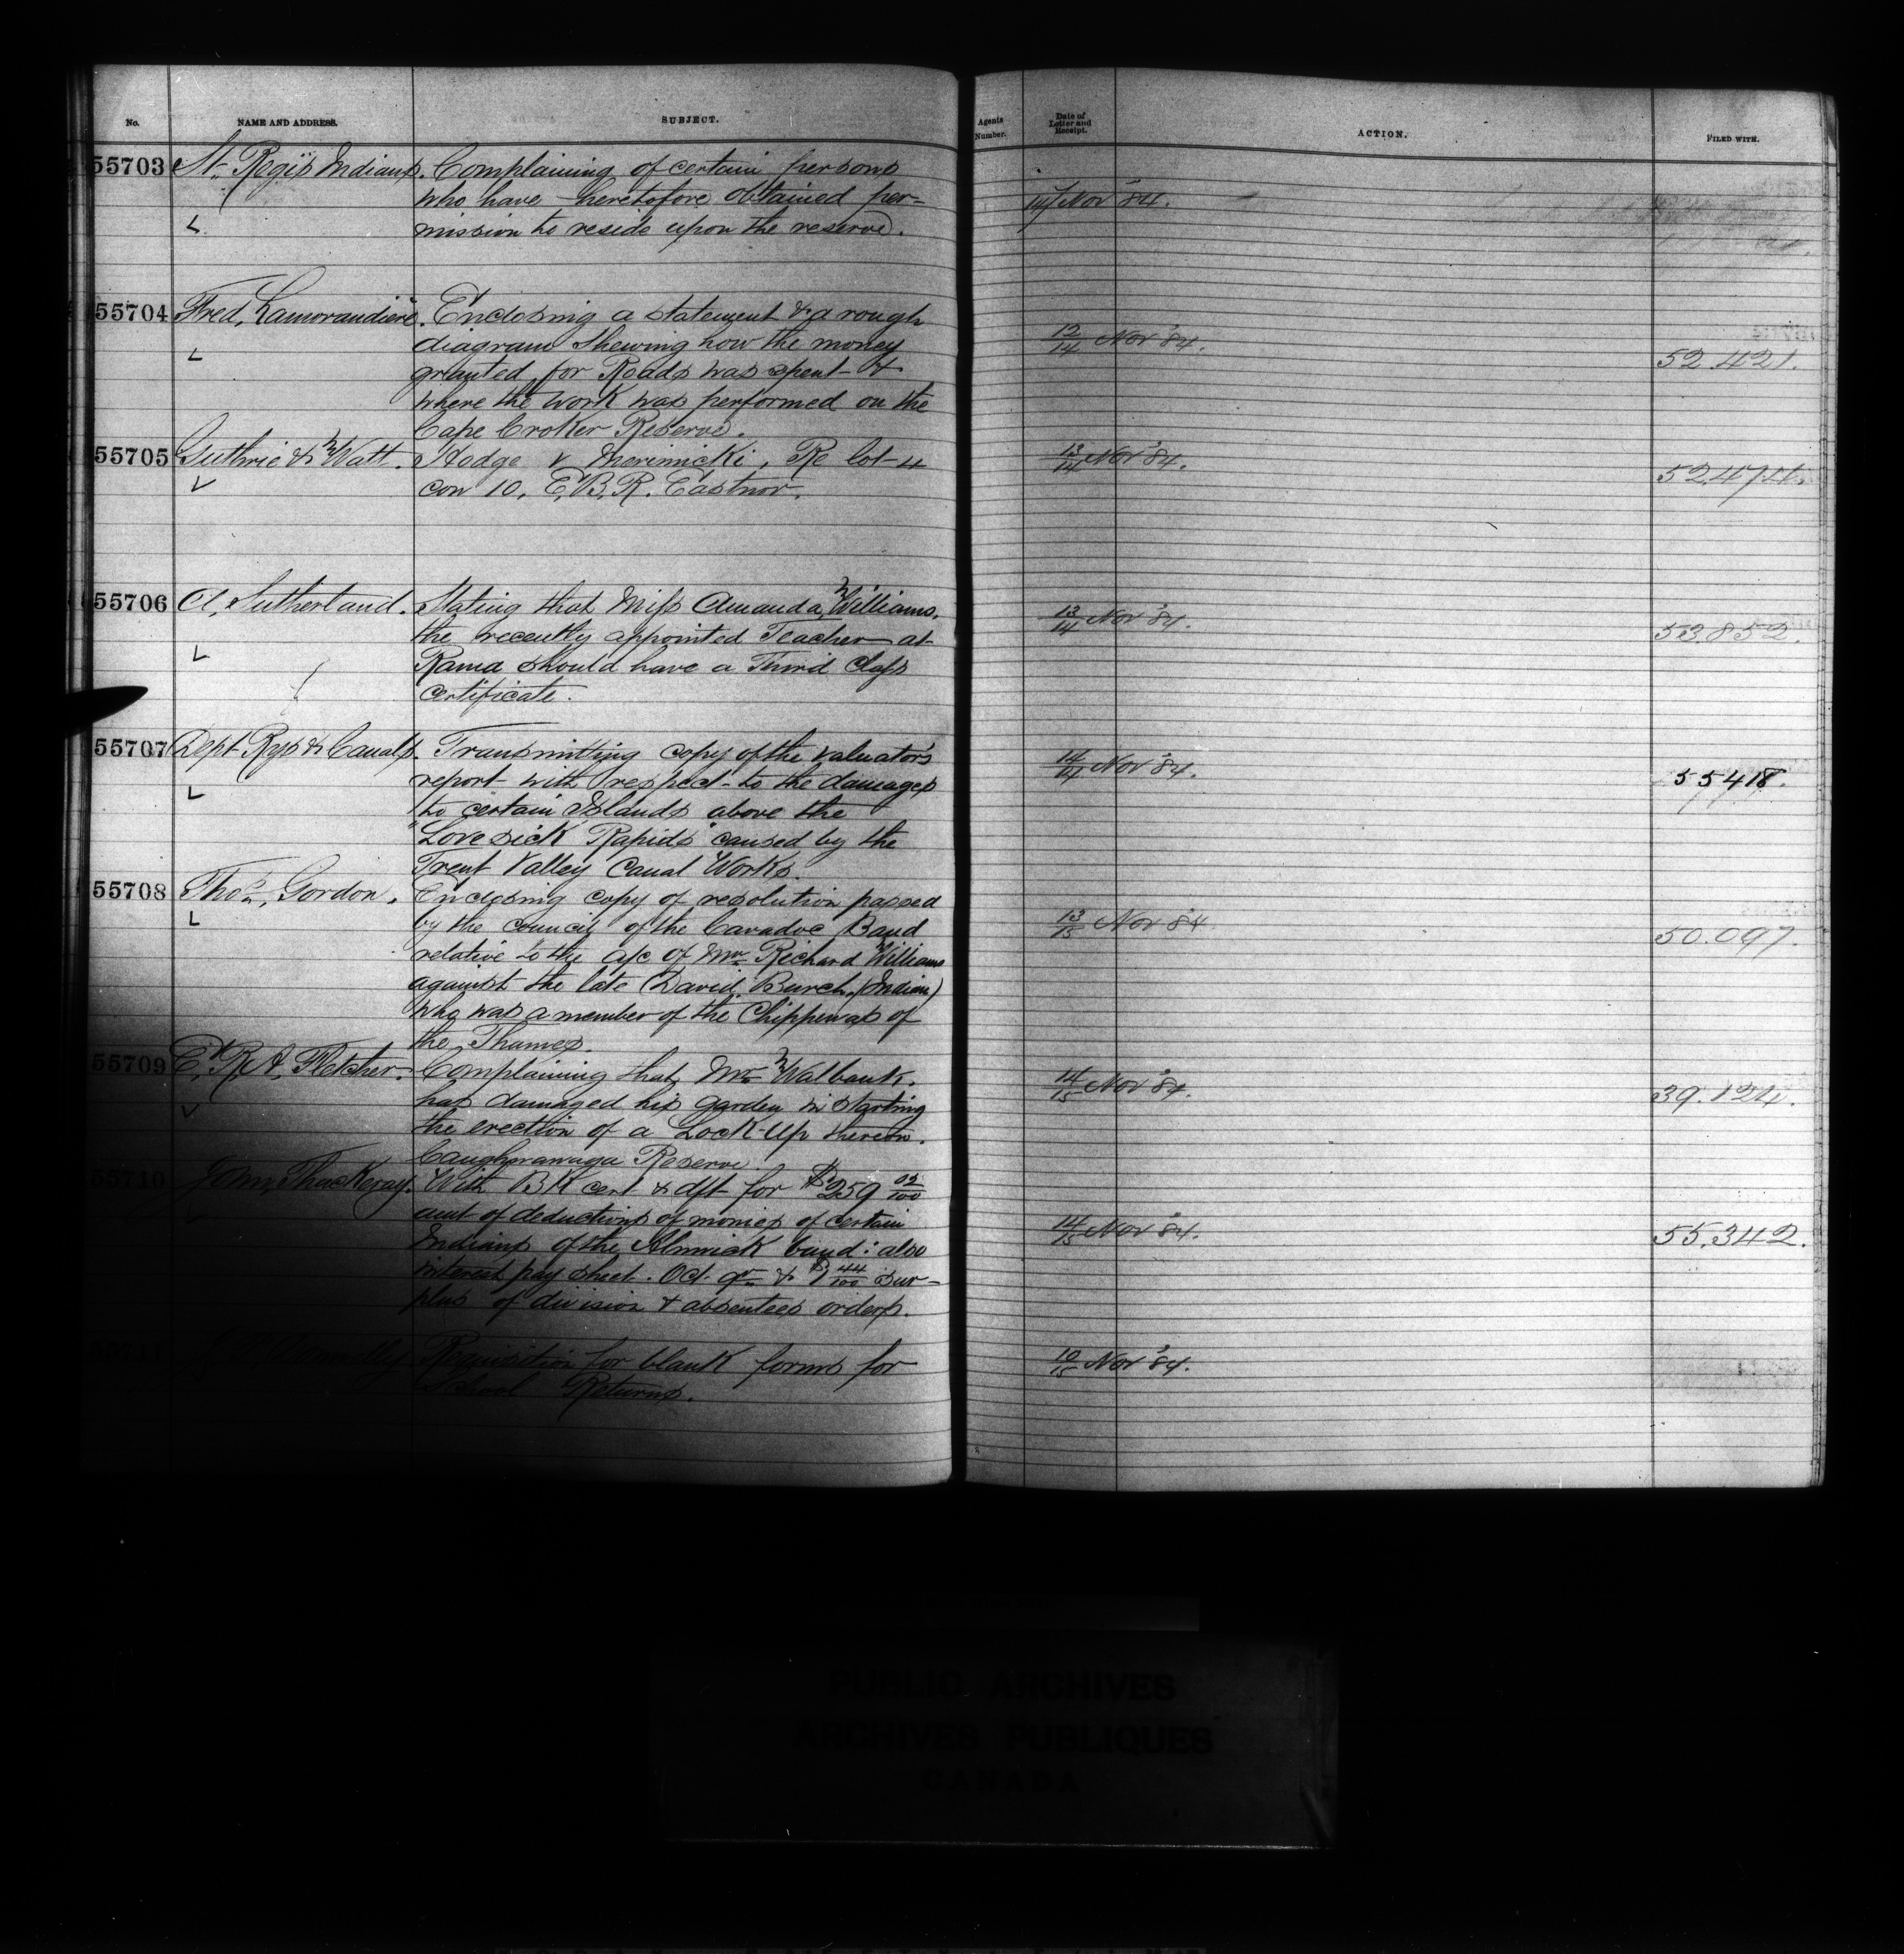 No. NAME AND ADDRESS. SUBJECT. Agents Number. Date of Letter and Receipt. ACTION. FILED WITH.
55703 St. Regis Indians. Complaining of certain persons
who have heretofore obtained per-
mission to reside upon the reserve.
14 Nov '84.
55704 Fred. Lamorandiere. Enclosing a statement & a rough
diagram shewing how the money
granted for Roads was spent &
where the work was performed on the
Cape Croker Reserve.
12/14 Nov '84. 52.421.
55705 Guthrie & Watt. Hodge v Merimicki, Re lot 4
con 10, E.B.R. Eastnor.
13/14 Nov '84. 52.474.
55706 A. Sutherland. Stating that Miss Amanda Williams,
the recently appointed Teacher at
Rama should have a Third Class
certificate.
13/14 Nov '84. 53.852.
55707 Dept Rys & Canals. Transmitting copy of the valuator's
report with respect to the damages
to certain Islands above the
"Lovesick Rapids" caused by the
Trent Valley Canal Works.
14/14 Nov '84. 55418.
55708 Thos. Gordon. Enclosing copy of resolution passed
by the council of the Caradoc Band
relative to the a/c of Mr Richard Williams
against the late David Burch, (Indian)
who was a member of the Chippewas of
the Thames.
13/15 Nov '84 50.097.
55709 E. R. A. Fletcher. Complaining that Mr Walbank.
has damaged his garden in starting
the erection of a Lock-Up thereon.
Caughnawaga Reserve.
14/15 Nov '84. 39.124.
55710 John Thackeray. With BK cert & dft for $259 05/100
amt of deductions of monies of certain
Indians of the Alnwick band: also
interest pay sheet. Oct. qr & $1 44/100 sur-
plus of division & absentees orders.
14/15 Nov '84. 55.342.
55711 Donnelly Requisition for blank forms for
School Returns.
10/15 Nov '84.
PUBLIC ARCHIVES
ARCHIVES PUBLIQUES
CANADA